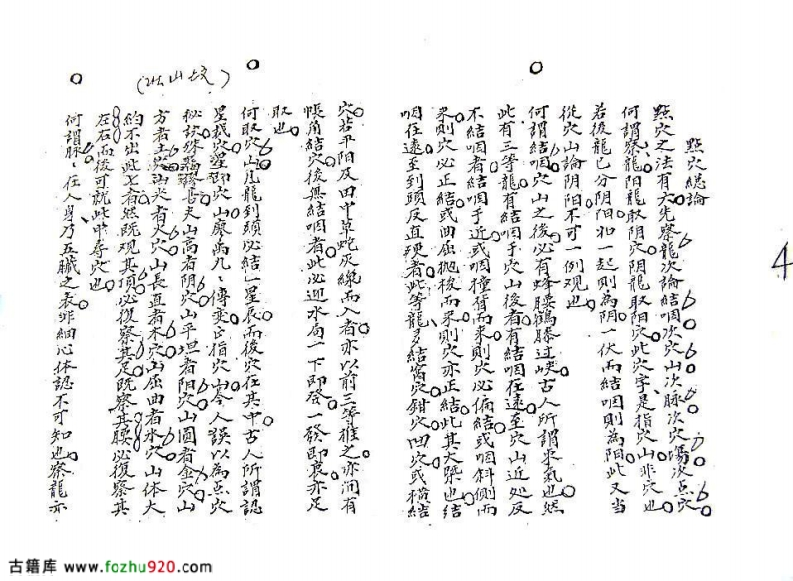 點穴總論
點穴之法有六先察龍次論結咽次穴山次脉次穴場次点穴
何謂察龍阳龍取阴穴阴龍取阳穴此穴字是指穴山非穴也
若後龍已分阴阳和一起則為阴一伏而結咽則為阳此又当
從穴山論阴阳不可一例观也
何謂結咽穴山之後必有蜂腰鶴膝过峡古人所謂束氣也然
此有三等龍有結咽于穴山後者有結咽在遠至穴山近处反
不結咽者結咽于近或咽撞背而来則穴必偏結或咽斜側而
来則穴必正結或曲屈抛梭而来則穴亦正結此其大槩也結
咽在遠至到頭反直硬者此等龍多結窩穴鉗穴凹穴或橫結
穴若平阳及田中草蛇灰線而入者亦以前三等推之亦间有
帳角結穴後無結咽者此必迎水局一下即發一發即衰亦足
取也
(此山坟)
何取穴山凡龍到頭必結一星辰而後穴在其中古人所謂認
星找穴星即穴山廖禹九傳变正指穴山今人誤以為点穴
秘訣殊為喜夫山高者阴穴山平坦者阳穴山圓者金穴山
方者土穴山尖者火穴山長直者木穴山屈曲者水穴山体大
約不出此七者然既观其頂必復察其足既察其腰必復察其
左右而後可就此中尋穴也
何謂脉脉在人身乃五臟之表非細心体認不可知也察龍亦
4
古籍库 www.fozhu920.com